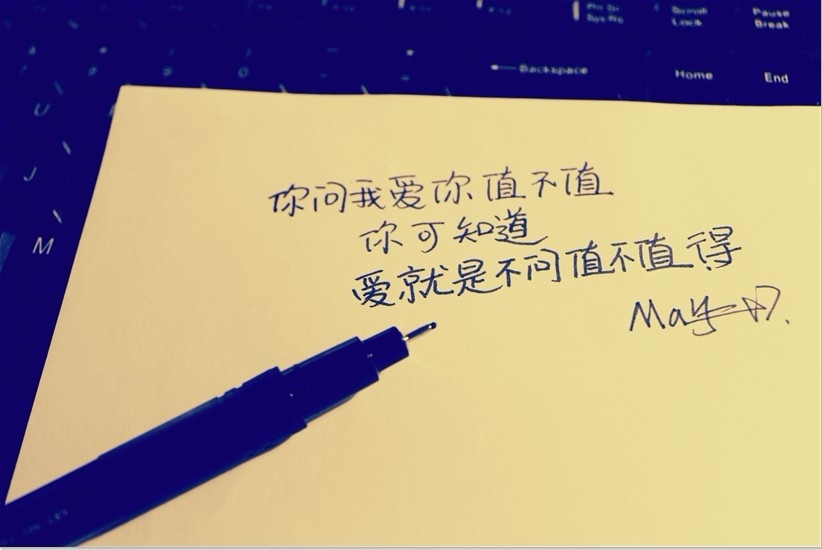 Scroll
Lock
Pause
Break
Backspace
Home
End
U
J
M
你问我爱你值不值
你可知道
爱就是不问值不值得
May